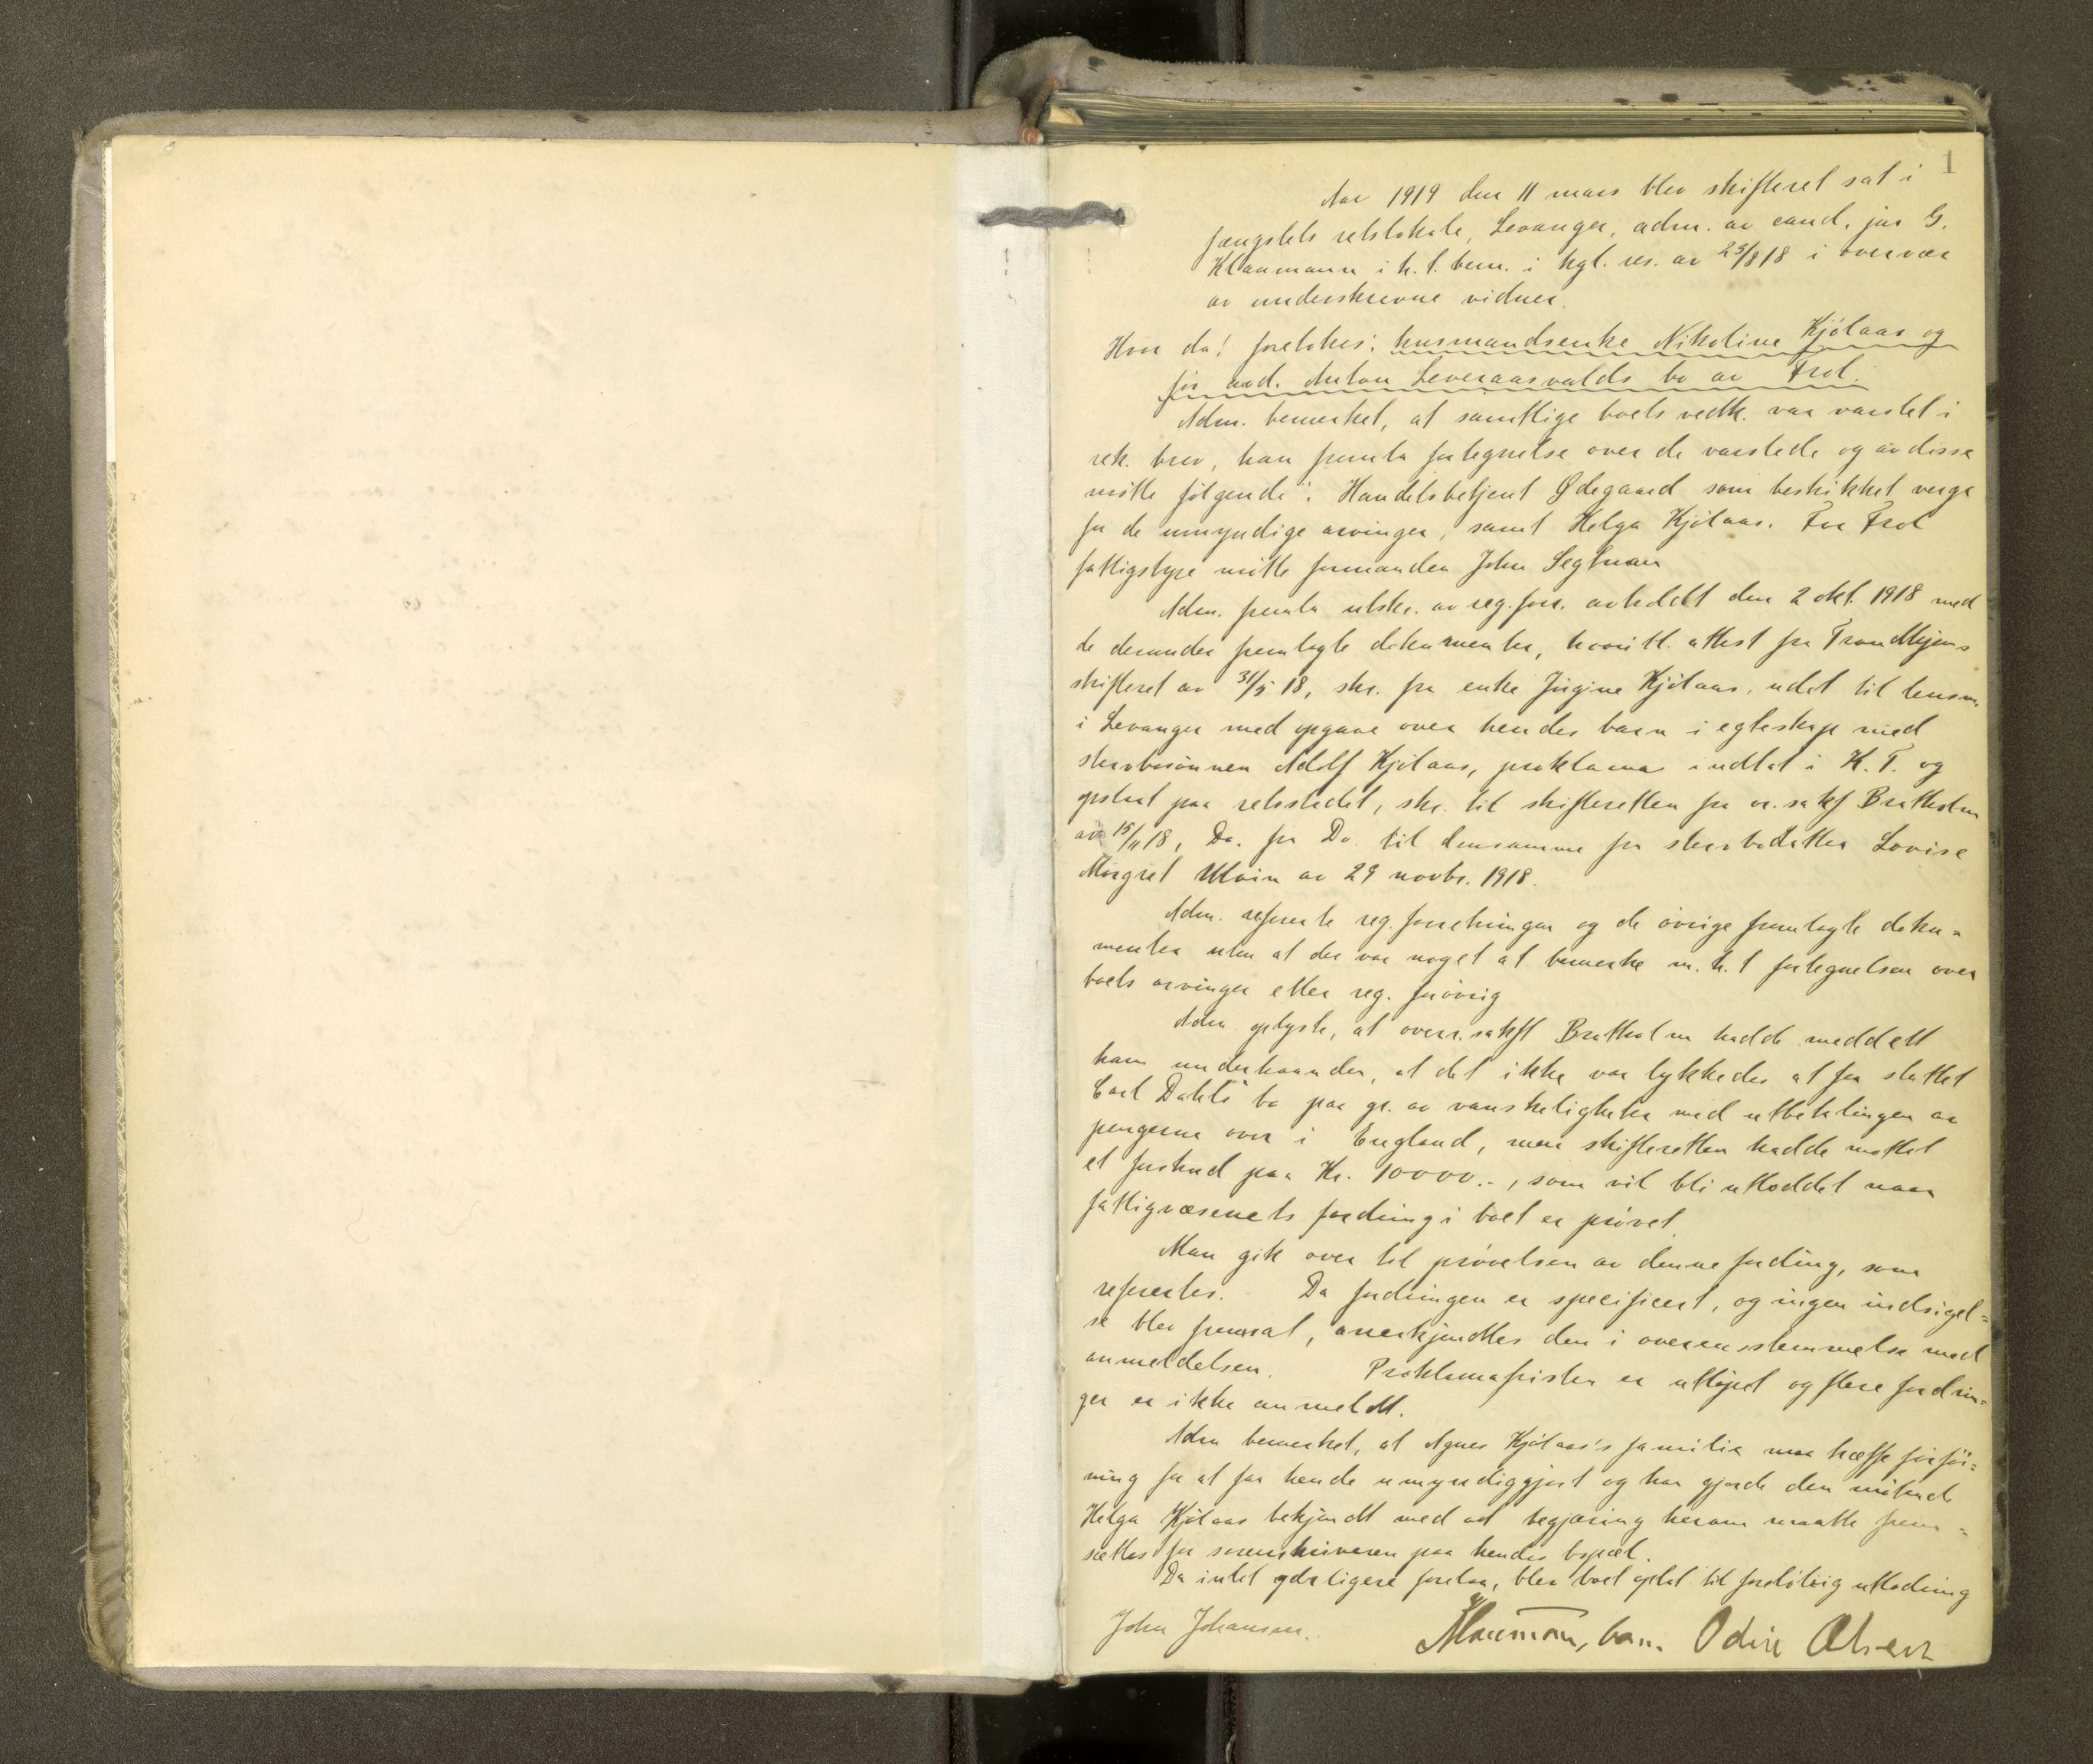 1
Aar 1919 den 11 mars blev skifteret sat i
fængslets retslokale, Levanger, adm. av cand. jur G.
Klaumann i h. t. bem. i kgl. res. av 23/8 18 i overvær
av underskrevne vidner.
Hvor da! foretokes: husmandsenke Nikoline Kjølaas og
før avd. Anton Leveraasvalds bo av Frol.
Adm. bemerket, at samtlige boets vedk. var varslet i
rek. brev, han fremla fortegnelse over de varslede og av disse
møtte følgende: Handelsbetjent Ødegaard som beskikket verge
for de umyndige arvinger, samt Helga Kjølaas. For Frol
fattigstyre møtte formanden John Segtnan
Adm. fremla utskr. av reg. forr. avholdt den 2 okt. 1918 med
de derunder fremlagte dokumenter, hvortil attest fra Trondhjems
skifteret av 31/5 18, skr. fra enke Jørgine Kjølaas, uddt til lensm.
i Levanger med opgave over hendes barn i egteskap med
stervbosønnen Adolf Kjølaas, proklama indtat i K. T. og
opslaat paa retsstedet, skr. til skifteretten fra or. sakf Bratholm
av 15/11 18, Do. fra Do til densamme fra stervbodatter Lovise
Margret Moin av 29 novbr. 1918.
Adm. referete reg. forretningen og de øvrige fremlagte doku-
menter uten at der var noget at bemerke m. h. t fortegnelsen over
boets arvinger eller reg. forøvrig
Adm. oplyste, at overr. sakf Bratholm hadde meddelt
ham underhaanden, at det ikke var lykkedes at faa sluttet
Carl Dahls bo paa gr. av vanskeligheter med utbetalingen av
pengerne over i England, men skifteretten hadde mottat
et forskud paa Kr. 10000.-, som vil bli utloddet naar
fattigvæsenets fordring i boet er prøvet.
Man gik over til prøvelsen av denne fordring, som
referertes. Da fordringen er specificert, og ingen indsigel-
se blev fremsat, anerkjendtes den i overensstemmelse med
anmeldelsen. Proklamafristen er utløpet og flere fordrin-
ger er ikke anmeldt.
Adm bemerket, at Agnes Kjølaas's familie maa træffe forføi-
ning for at faa hende umyndiggjort og han gjorde den møtende
Helga Kjølaas bekjendt med at begjæring herom maatte frem-
sættes for sorenskriveren paa hendes bopæl.
Da intet yderligere forelaa, blev boet optat til foreløbig utlodning
John Johansen. Klaumann, bem. Odin Olsen